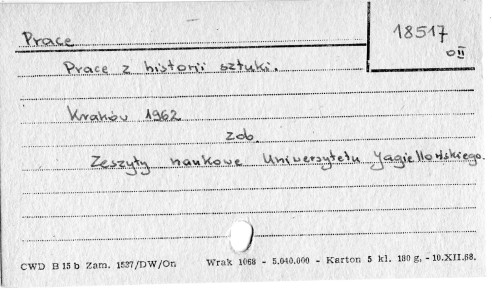 Prace
18517
oII
Prace z historii sztuki.
Kraków 1962
zob.
Zeszyty naukowe Uniwersytetu Jagiellońskiego.
CWD B 15 b Zam. 1537/DW/On Wrak 1068 - 5.040.000 - Karton 5 kl. 180 g. - 10.XII.68.